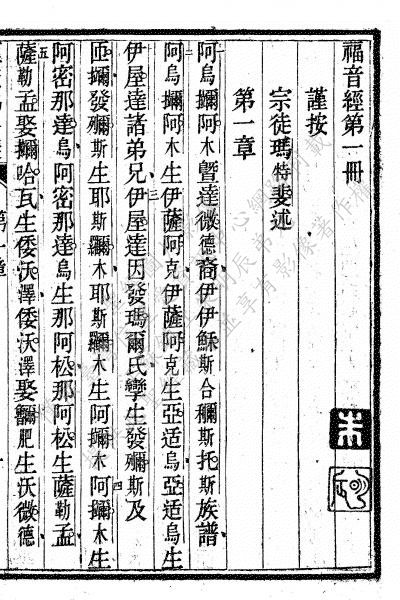 福音經第一冊
謹按
宗徒瑪特斐述
第一章
阿烏攡阿木暨達微德裔伊伊穌斯合穪斯托斯族譜
阿烏攡阿木生伊薩阿克伊薩阿克生亞适烏亞适烏生
伊屋達諸弟兄伊屋達因發瑪爾氏孿生發穪斯及
匝攡發穪斯生耶斯攡木耶斯攡木生阿攡木阿攡木生
阿密那達烏阿密那達烏生那阿松那阿松生薩勒孟
薩勒孟娶攡哈瓦生倭沃澤倭沃澤娶肥生沃微德